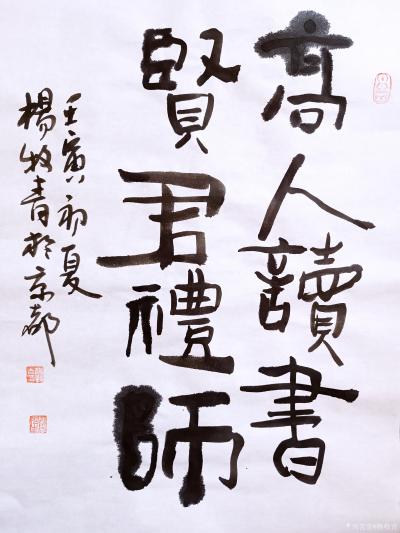 高人讀書
賢君禮師
壬寅初夏
楊牧青於京都